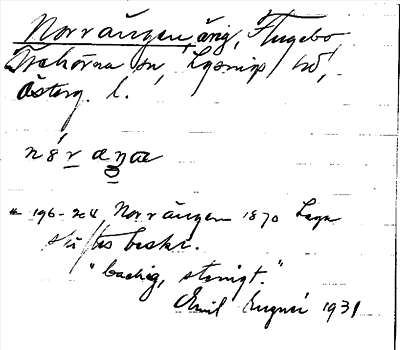 Norrängen, äng, Flugebo,
Trehörna sn, Lysings hd,
Österg. l.
nóræŋæ
196-204 Norrängen 1870 Laga
skiftes beskr.
"backig, stenigt."
Emil 1931